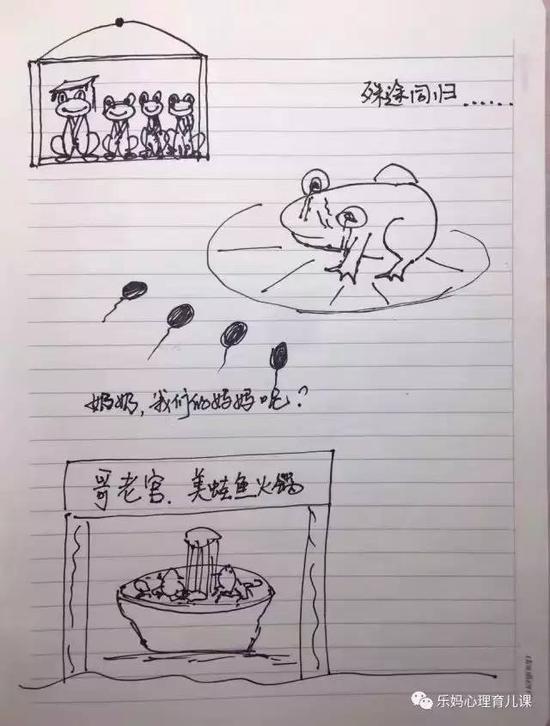 殊途同归……
奶奶,我们的妈妈呢?
哥老官.美蛙鱼火锅
乐妈心理育儿课